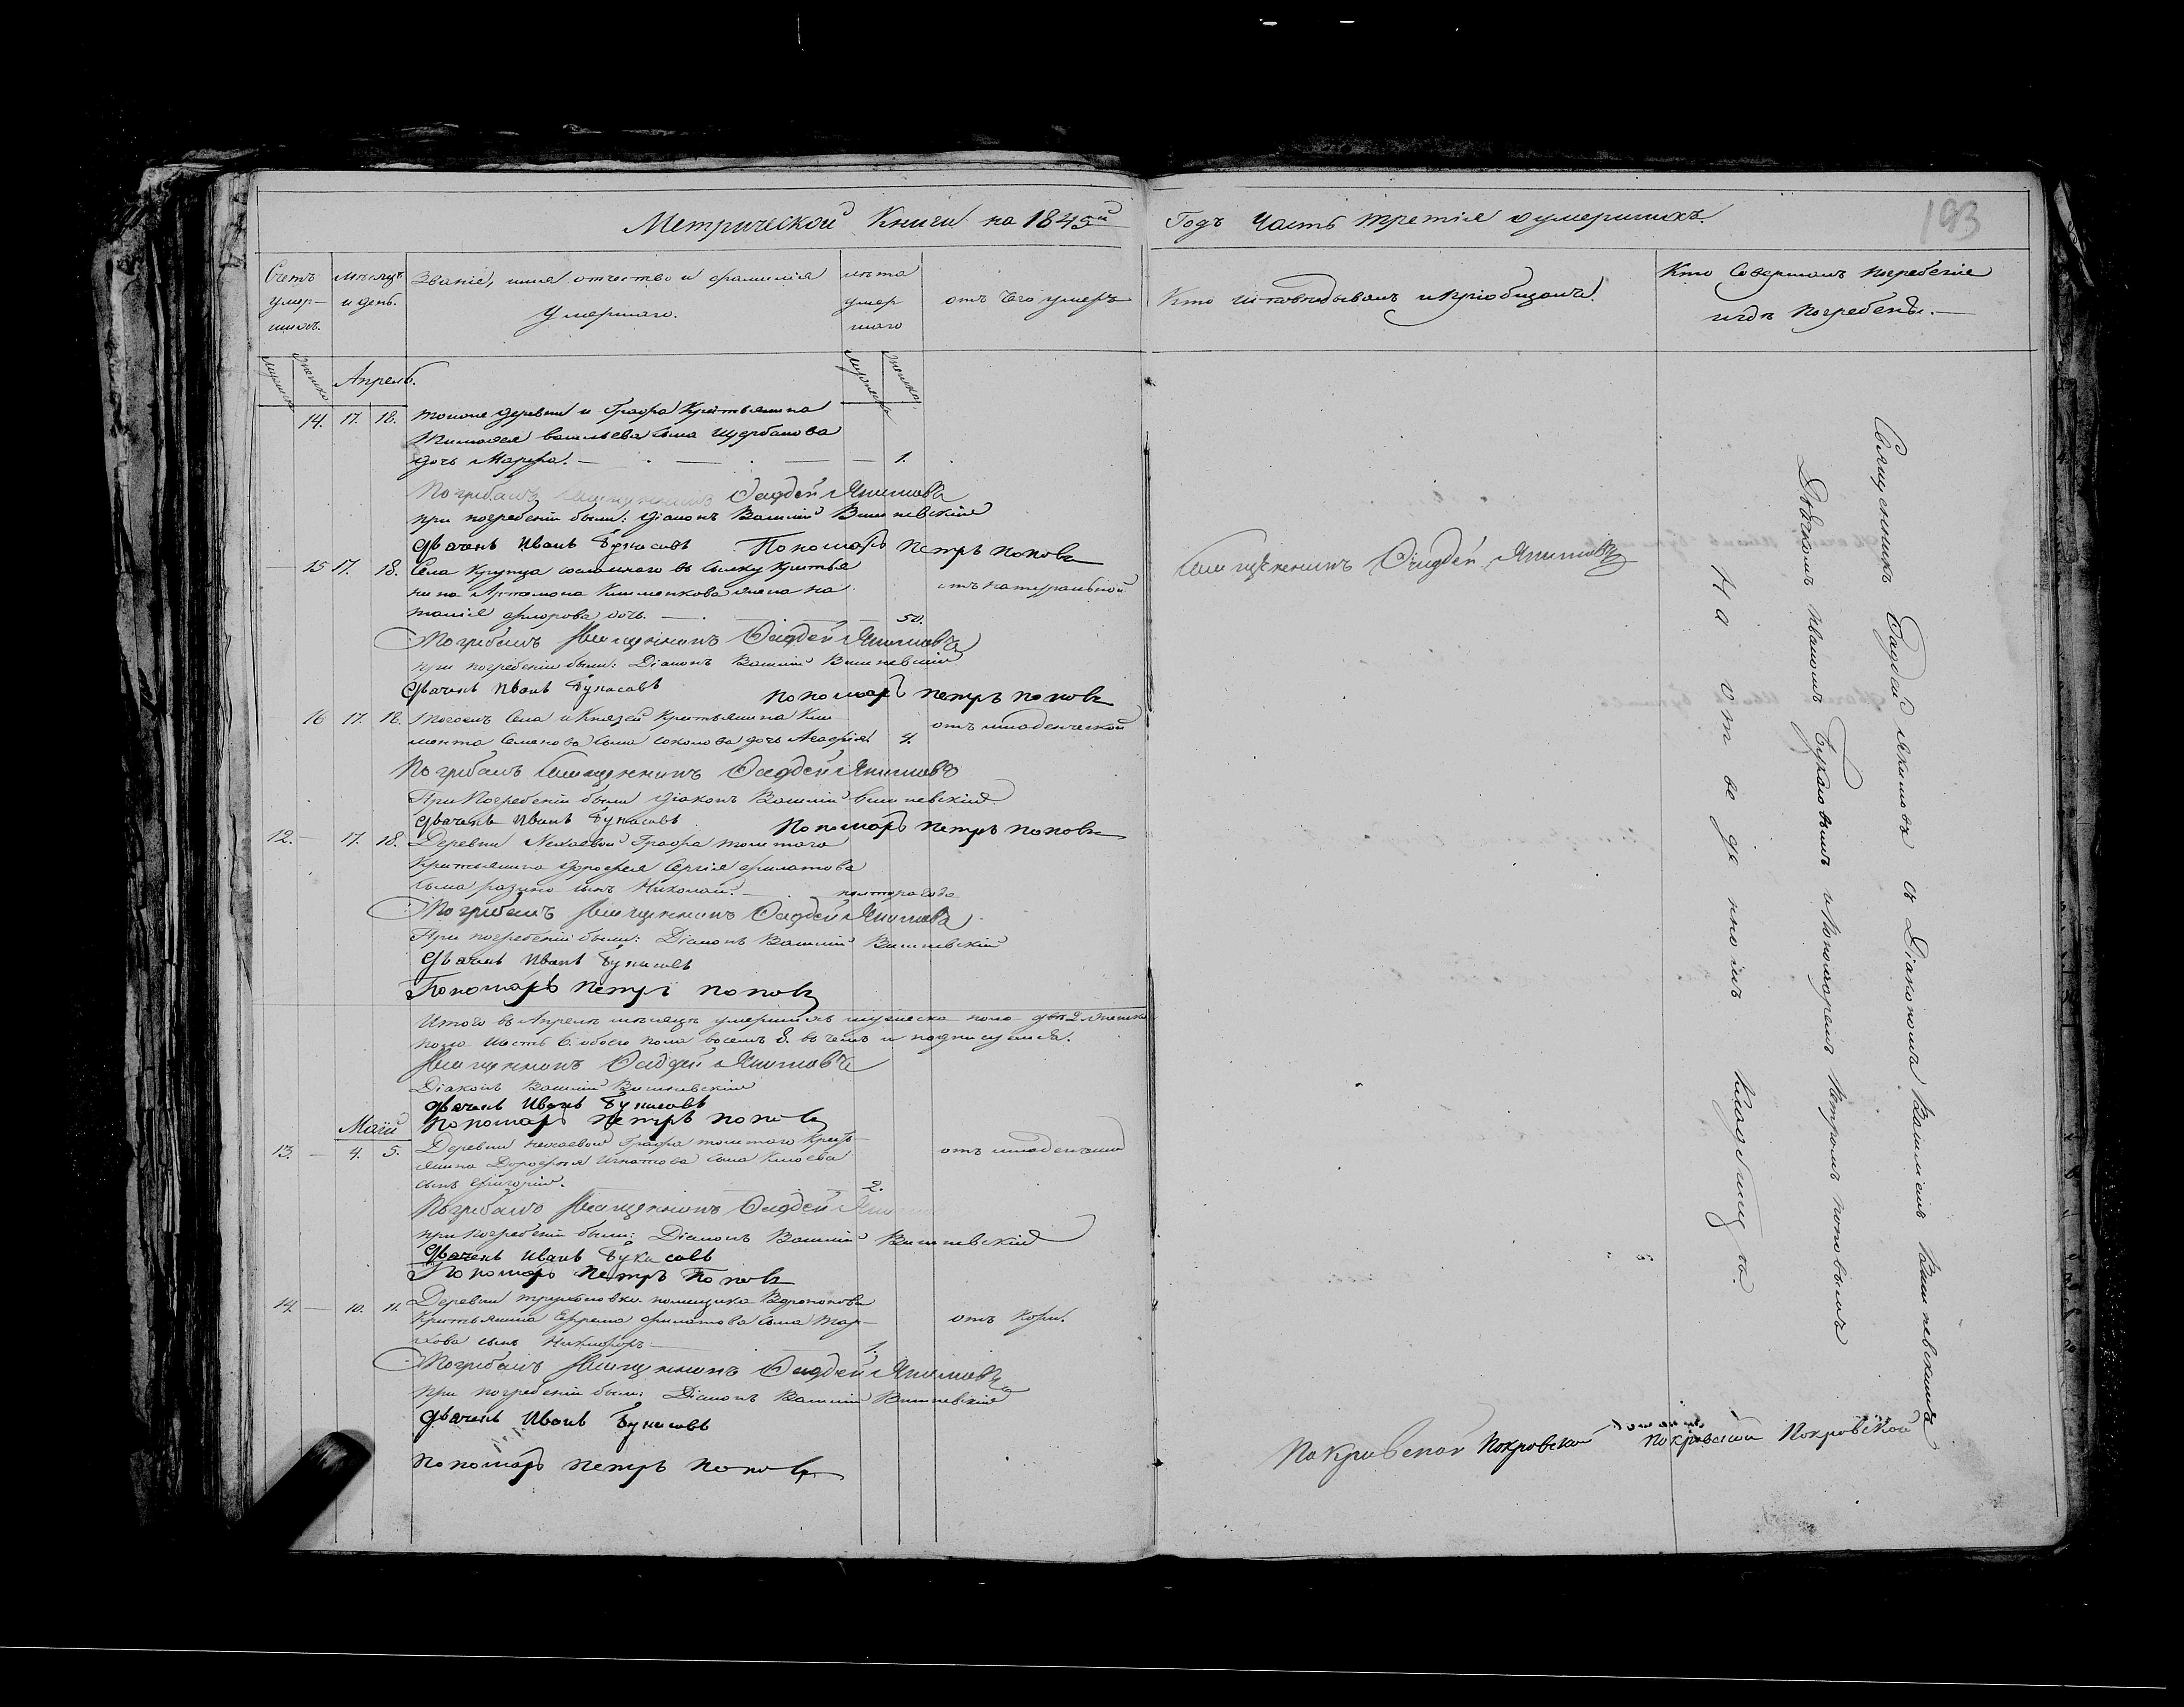 Метрической Книги на 1845й Годъ Часть третія о умершихъ.
193
Счетъ умер-шихъ.
мѣсяцъ и день.
Званіе, имя отчество и фамилія Умершаго.
лѣта умер шаго
отъ Чего умеръ
Кто исповѣдывалъ и пріобщалъ.
Кто Совершалъ погребеніе и гдѣ погребены.
мужеска
женска
Апрель.
14. 17. 18. тойже деревни и Графа Крестьянина
Тимофея васильева сына Щербакова
дочь Марфа. 1.
Погребалъ Священникъ Фаддей Якимовъ
при погребеніи были: діаконъ Василій Вишневскій
дьячекъ Иванъ Букасовъ Пономарь Петръ поповъ
15 17. 18. Села Крупца сосланнаго въ сылку крестья
нина Артамона Клименкова жена На
талія федорова дочь. 50.
отъ натуральной
Священникъ Фаддей Якимовъ
Погребалъ Священникъ Фаддей Якимовъ
при погребеніи были: Діаконъ Василій Вишневскій
дьячекъ Иванъ Букасовъ
пономарь петръ поповъ
16 17. 18. Тогожъ Села и Князей Крестьянина Кли
мента Семенова сына соколова дочь Агафія 4.
отъ младенческой
Погребалъ Священникъ Фаддей Якимовъ
При Погребеніи были діаконъ Василій Вишневскій
дьячекъ Иванъ Букасовъ
пономарь петръ поповъ
12. 17. 18. Деревни Нехаевки Графа толстаго
Крестьянина Сергія филатова
сына сынъ Николай. полтора года
Погребалъ Священникъ Фаддей Якимовъ
При погребеніи были: Діаконъ Василій Вишневскій
дьячекъ Иванъ Букасовъ
Пономарь петръ поповъ
Итого въ Апрелѣ мѣсяцѣ умершихъ мужеска пола два 2 женска
пола шесть 6. обоего пола восемь 8. въ чемъ и подписуемся.
Священникъ Фаддей Якимовъ
Діаконъ Василій Вишневскій
дьячекъ Иванъ Букасовъ
пономарь петръ поповъ
Маій
13. 4. 5. Деревни Нехаевки Графа толстаго Крест-
янина Дорофея Игнатова сына
сынъ Григорій. 2.
отъ младенческой
Погребалъ Священникъ Фаддей
при погребеніи были: Діаконъ Василій Вишневскій
дьячекъ Иванъ Букасовъ
Пономарь петръ Поповъ
14 10. 11. Деревни помещика
Крестьянина Ефрема филатова сына
сынъ Никифоръ 1.
отъ Кори.
Погребалъ Священникъ Фаддей Якимовъ
при погребеніи были: Діаконъ Василій Вишневскій
дьячекъ Иванъ Букасовъ
пономарь петръ поповъ
Священникъ Фаддей Якимовъ съ Діакономъ Василіемъ Вишневскимъ
Дьячкомъ Иваномъ Букасовымъ и Пономаремъ Петромъ поповымъ
На отведенномъ кладбищѣ.
Покровской Покровской Покровской Покровской